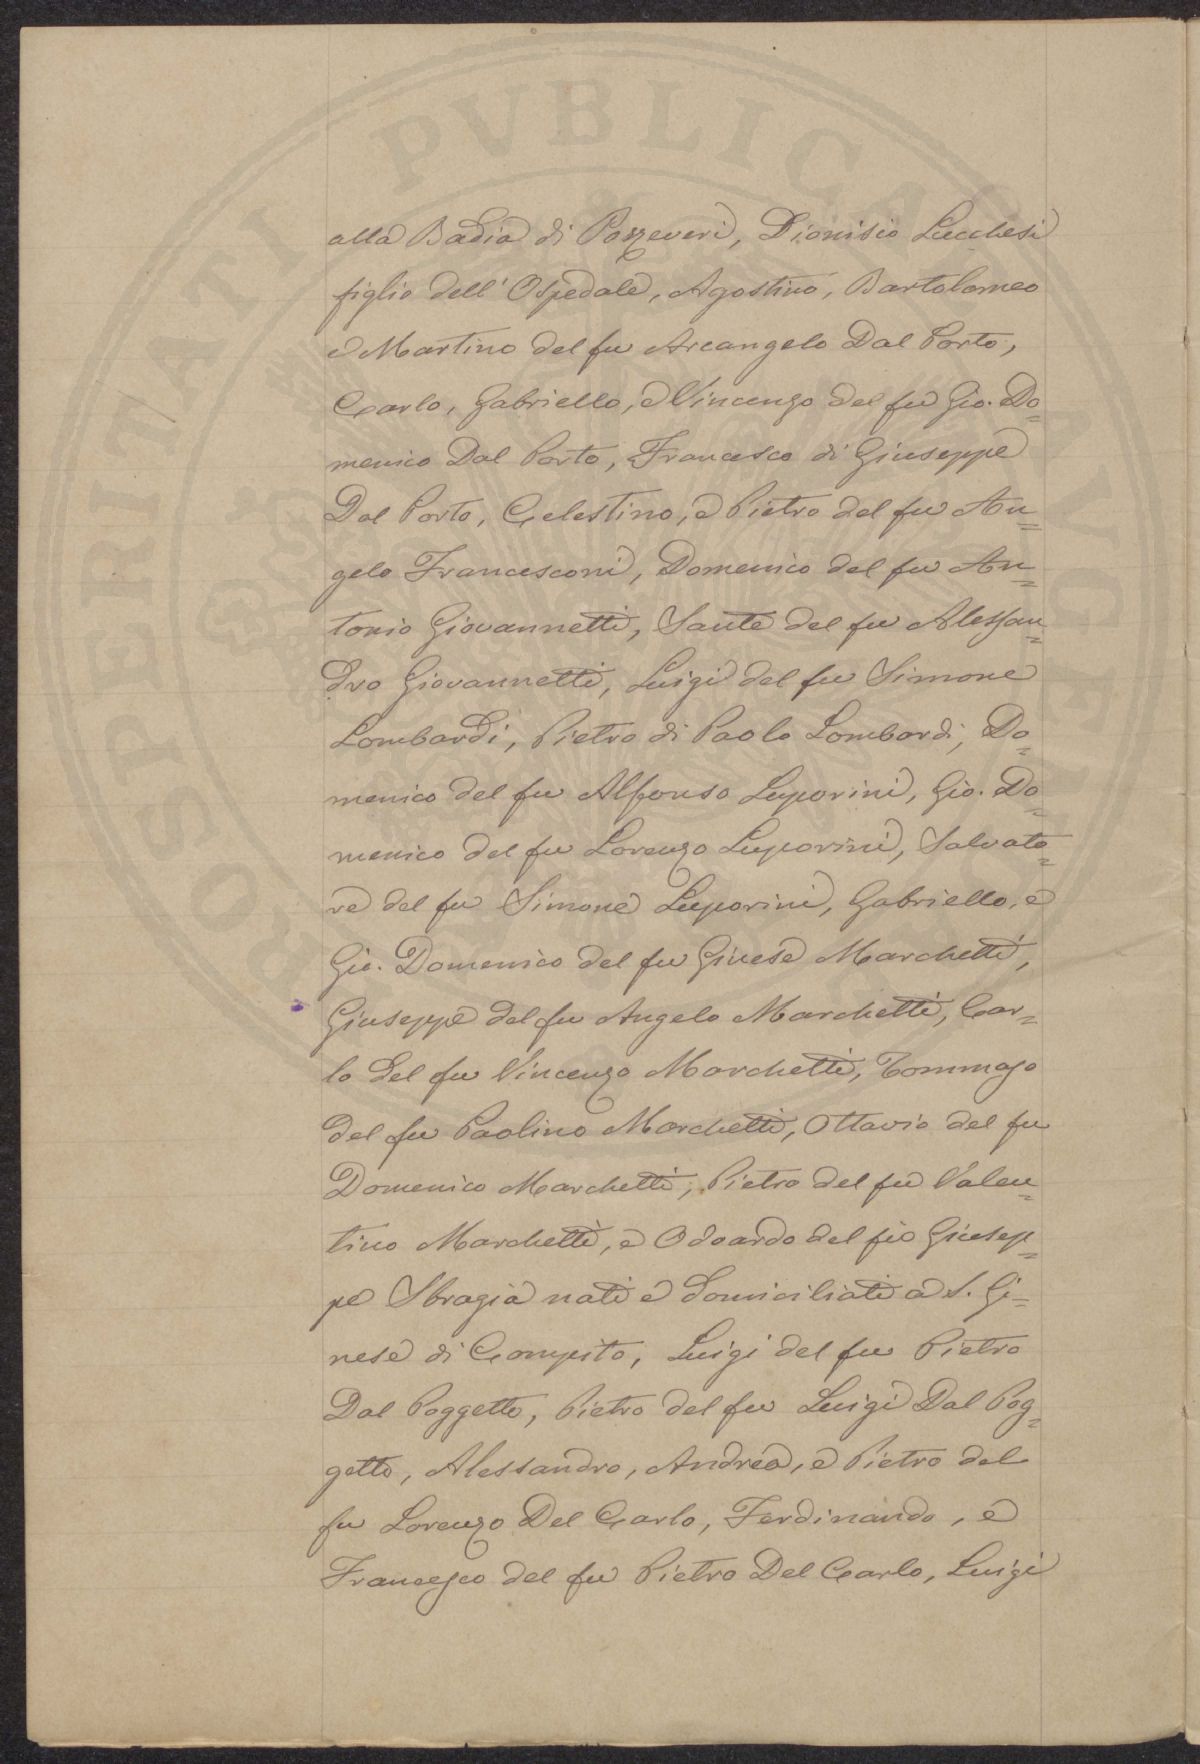 alla Badia di Pozzeveri, Dionisio Lucchesi
figlio dell' Ospedale, Agostino, Bartolomeo
e Martino del fu Arcangelo Dal Porto,
Carlo, Gabriello, e Vincenzo del fu Gio. Do=
menico Dal Porto, Francesco di Giuseppe
Dal Porto, Celestino, e Pietro del fu An=
gelo Francesconi, Domenico del fu An=
tonio Giovannetti, Sante del fu Alessan=
dro Giovannetti, Luigi del fu Simone
Lombardi, Pietro di Paolo Lombardi, Do=
menico del fu Alfonso Luporini, Gio. Do=
menico del fu Lorenzo Luporini, Salvato=
re del fu Simone Luporini, Gabriello, e
Gio. Domenico del fu Ginese Marchetti,
Giuseppe del fu Angelo Marchetti, Car=
lo del fu Vincenzo Marchetti, Tommaso
del fu Paolino Marchetti, Ottavio del fu
Domenico Marchetti, Pietro del fu Valen=
tino Marchetti, e Odoardo del fu Giusep=
pe Sbragia nati e domiciliati a S. Gi=
nese di Compito, Luigi del fu Pietro
Dal Poggetto, Pietro del fu Luigi Dal Pog=
getto, Alessandro, Andrea, e Pietro del
fu Lorenzo Del Carlo, Ferdinando, e
Francesco del fu Pietro Del Carlo, Luigi